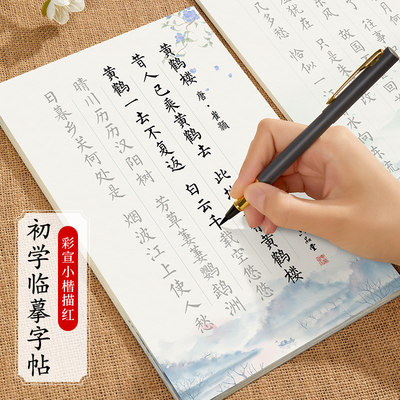 黄鹤楼
唐·崔颢
昔人已乘黄鹤去 此
黄鹤楼
黄鹤一去不复返 白云千载空悠悠
晴川历历汉阳树 芳草萋萋鹦鹉洲
日暮乡关何处是 烟波江上使人愁
多愁
恰似
只是
彩宣小楷描红
初学临摹字帖